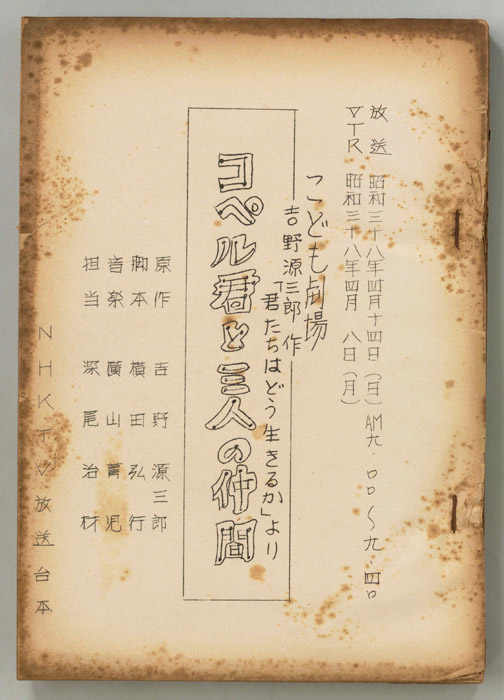 放送　昭和三十八年四月十四日（日）AM九・００〜九・四０
VTR　昭和三十八年四月　八日（月）
こども劇場
吉野源三郎 作
「君たちはどう生きるか」より
コペル君と三人の仲間
原作　吉野源三郎
脚本　横田弘行
音楽　廣山菁児
担当　深尾治材
NHKTV放送台本